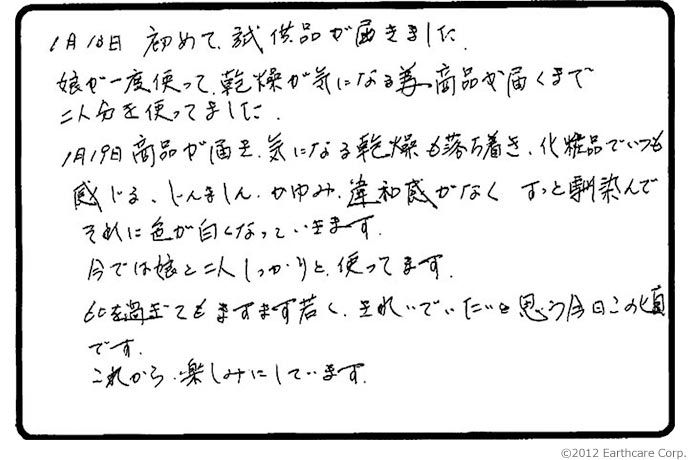 1月16日 初めて、試供品が届きました。
娘が一度使って、乾燥が気になる為商品が届くまで
二人分を使ってました。
1月19日商品が届き、気になる乾燥も落ち着き、化粧品でいつも
感じる、じんましん、かゆみ、違和感がなく すっと馴染んで
それに色が白くなっていきます。
今では娘と二人しっかりと、使ってます。
60を過ぎてもますます若く、きれいでいたいと思う今日この頃
です。
これから、楽しみにしています。
©2012 Earthcare Corp.